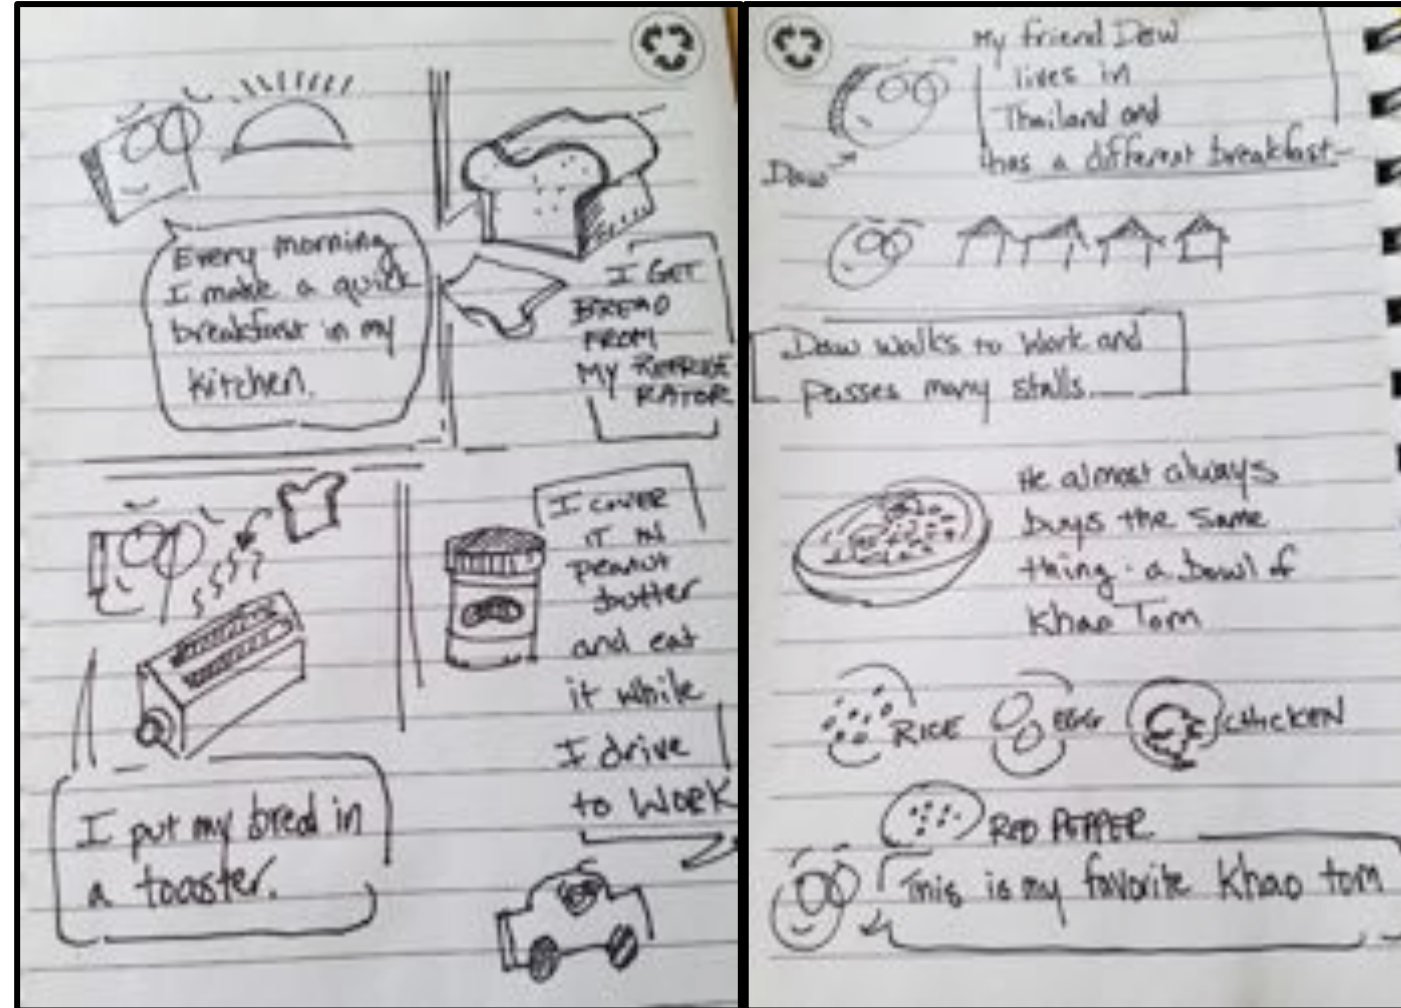 Every morning
I make a quick
breakfast in my
kitchen.
I GET
BREAD
FROM
MY REFRIGE
RATOR
I put my bred in
a toaster.
I COVER
IT IN
peanut
butter
and eat
it while
I drive
to WORK
My friend Daw
lives in
Thailand and
has a different breakfast
Daw
Daw walks to work and
passes many stalls.
He almost always
buys the same
thing. a bowl of
Khao Tom
RICE
EGG
CHICKEN
RED PEPPER
This is my favorite Khao tom